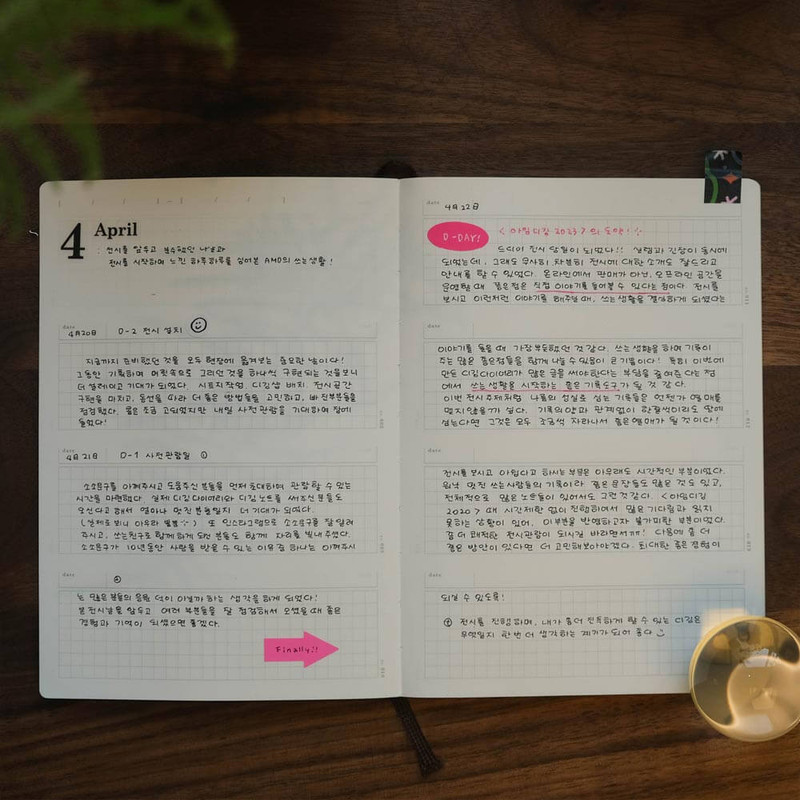 4 April
: 전시를 앞두고 분주했던 나날과
전시를 시작하며 느낀 하루하루를 담아본 AMD의 쓰는생활!
date
4月20日 D-2 전시 설치
지금까지 준비했던 것을 모두 현장에 옮겨보는 중요한 날이다!
그동안 기획하며 머릿속으로 그리던 것을 하나씩 구현 되는 것을보니
더 설레이고 기대가 되었다. 시트지작업 디깅샘 배치 전시공간
구현을 마치고, 동선을 따라 더 좋은 방법들을 고민하고, 빠진부분들을
점검했다. 몸은 조금 고되었지만 내일 사전관람을 기대하며 잠에
들었다!
date
4月21日 D-1 사전관람일 ①
소소문구를 아껴주시고 도움주신 분들을 먼저 초대하여 관람할 수 있는
시간을 마련했다. 실제 디깅다이어리와 디깅노트를 써주신 분들도
오신다고 해서 얼마나 멋진 분들일지 더 기대가 되었다.
(실제로 보니 아우라 뿜뿜) 또 인스타그램으로 소소문구를 잘 알려
주시고, 쓰는친구로 함께 하게 되신 분들도 함께 자리를 빛내주셨다.
소소문구가 10년동안 사랑을 받을 수 있는 이유중 하나는 아껴주시
date
②
는 많은 분들의 응원 덕이 아닐까 하는 생각을 하게 되었다!
본 전시날을 앞두고 여러 부분들을 잘 점검해서 오셨을 때 좋은
경험과 기억이 되셨으면 좋겠다.
Finally!!
date 4月22日
D-DAY!
<아임디깅 2023>의 오픈!
드디어 전시 당일이 되었다!! 설렘과 긴장이 동시에
되었는데, 그래도 무사히 차분히 전시에 대한 소개도 잘드리고
안내를 할 수 있었다. 온라인에서 판매가 아닌, 오프라인 공간을
운영할 때 좋은점은 직접 이야기를 들어볼 수 있다는 점이다. 전시를
보시고 이런저런 이야기를 해주실 때, 쓰는생활을 결심하게 되었다는
이야기를 들을 때 가장 뿌듯했던 것 같다. 쓰는생활을 하며 기록이
주는 많은 좋은점들을 함께 나눌 수 있음이 큰 기쁨이다! 특히 이번에
만든 디깅다이어리가 많은 글을 써야한다는 부담을 줄여준다는 점
에서 쓰는생활을 시작하는 좋은 기록도구가 될 것 같다.
이번 전시 주제처럼 나름의 성실로 심는 기록들은 언젠가 열매를
맺지않을까 싶다. 기록의 양과 관계없이 한줄씩이라도 땅에
심는다면 그것은 모두 조금씩 자라나서 좋은열매가 될 것이다!
date
전시를 보시고 아쉽다고 하시는 부분은 아무래도 시간적인 부분이었다.
워낙 멋진 쓰는사람들의 기록이라 좋은 문장들도 많은 것도 있고,
전체적으로 많은 노트들이 있어서도 그런것같다. <아임디깅
2020> 때 시간제한 없이 진행하여서 많은 기다림과 읽지
못하는 상황이 있어, 이 부분을 반영하고자 불가피한 부분이었다.
좀 더 쾌적한 전시관람이 되시길 바라면서!! 다음에 좀 더
좋은 방안이 있다면 더 고민해보아야겠다. 최대한 좋은 경험이
date
되실 수 있도록!
전시를 진행하며, 내가 좀더 진득하게 할 수 있는 디깅은
무엇일지 한번 더 생각하는 계기가 되어 좋다